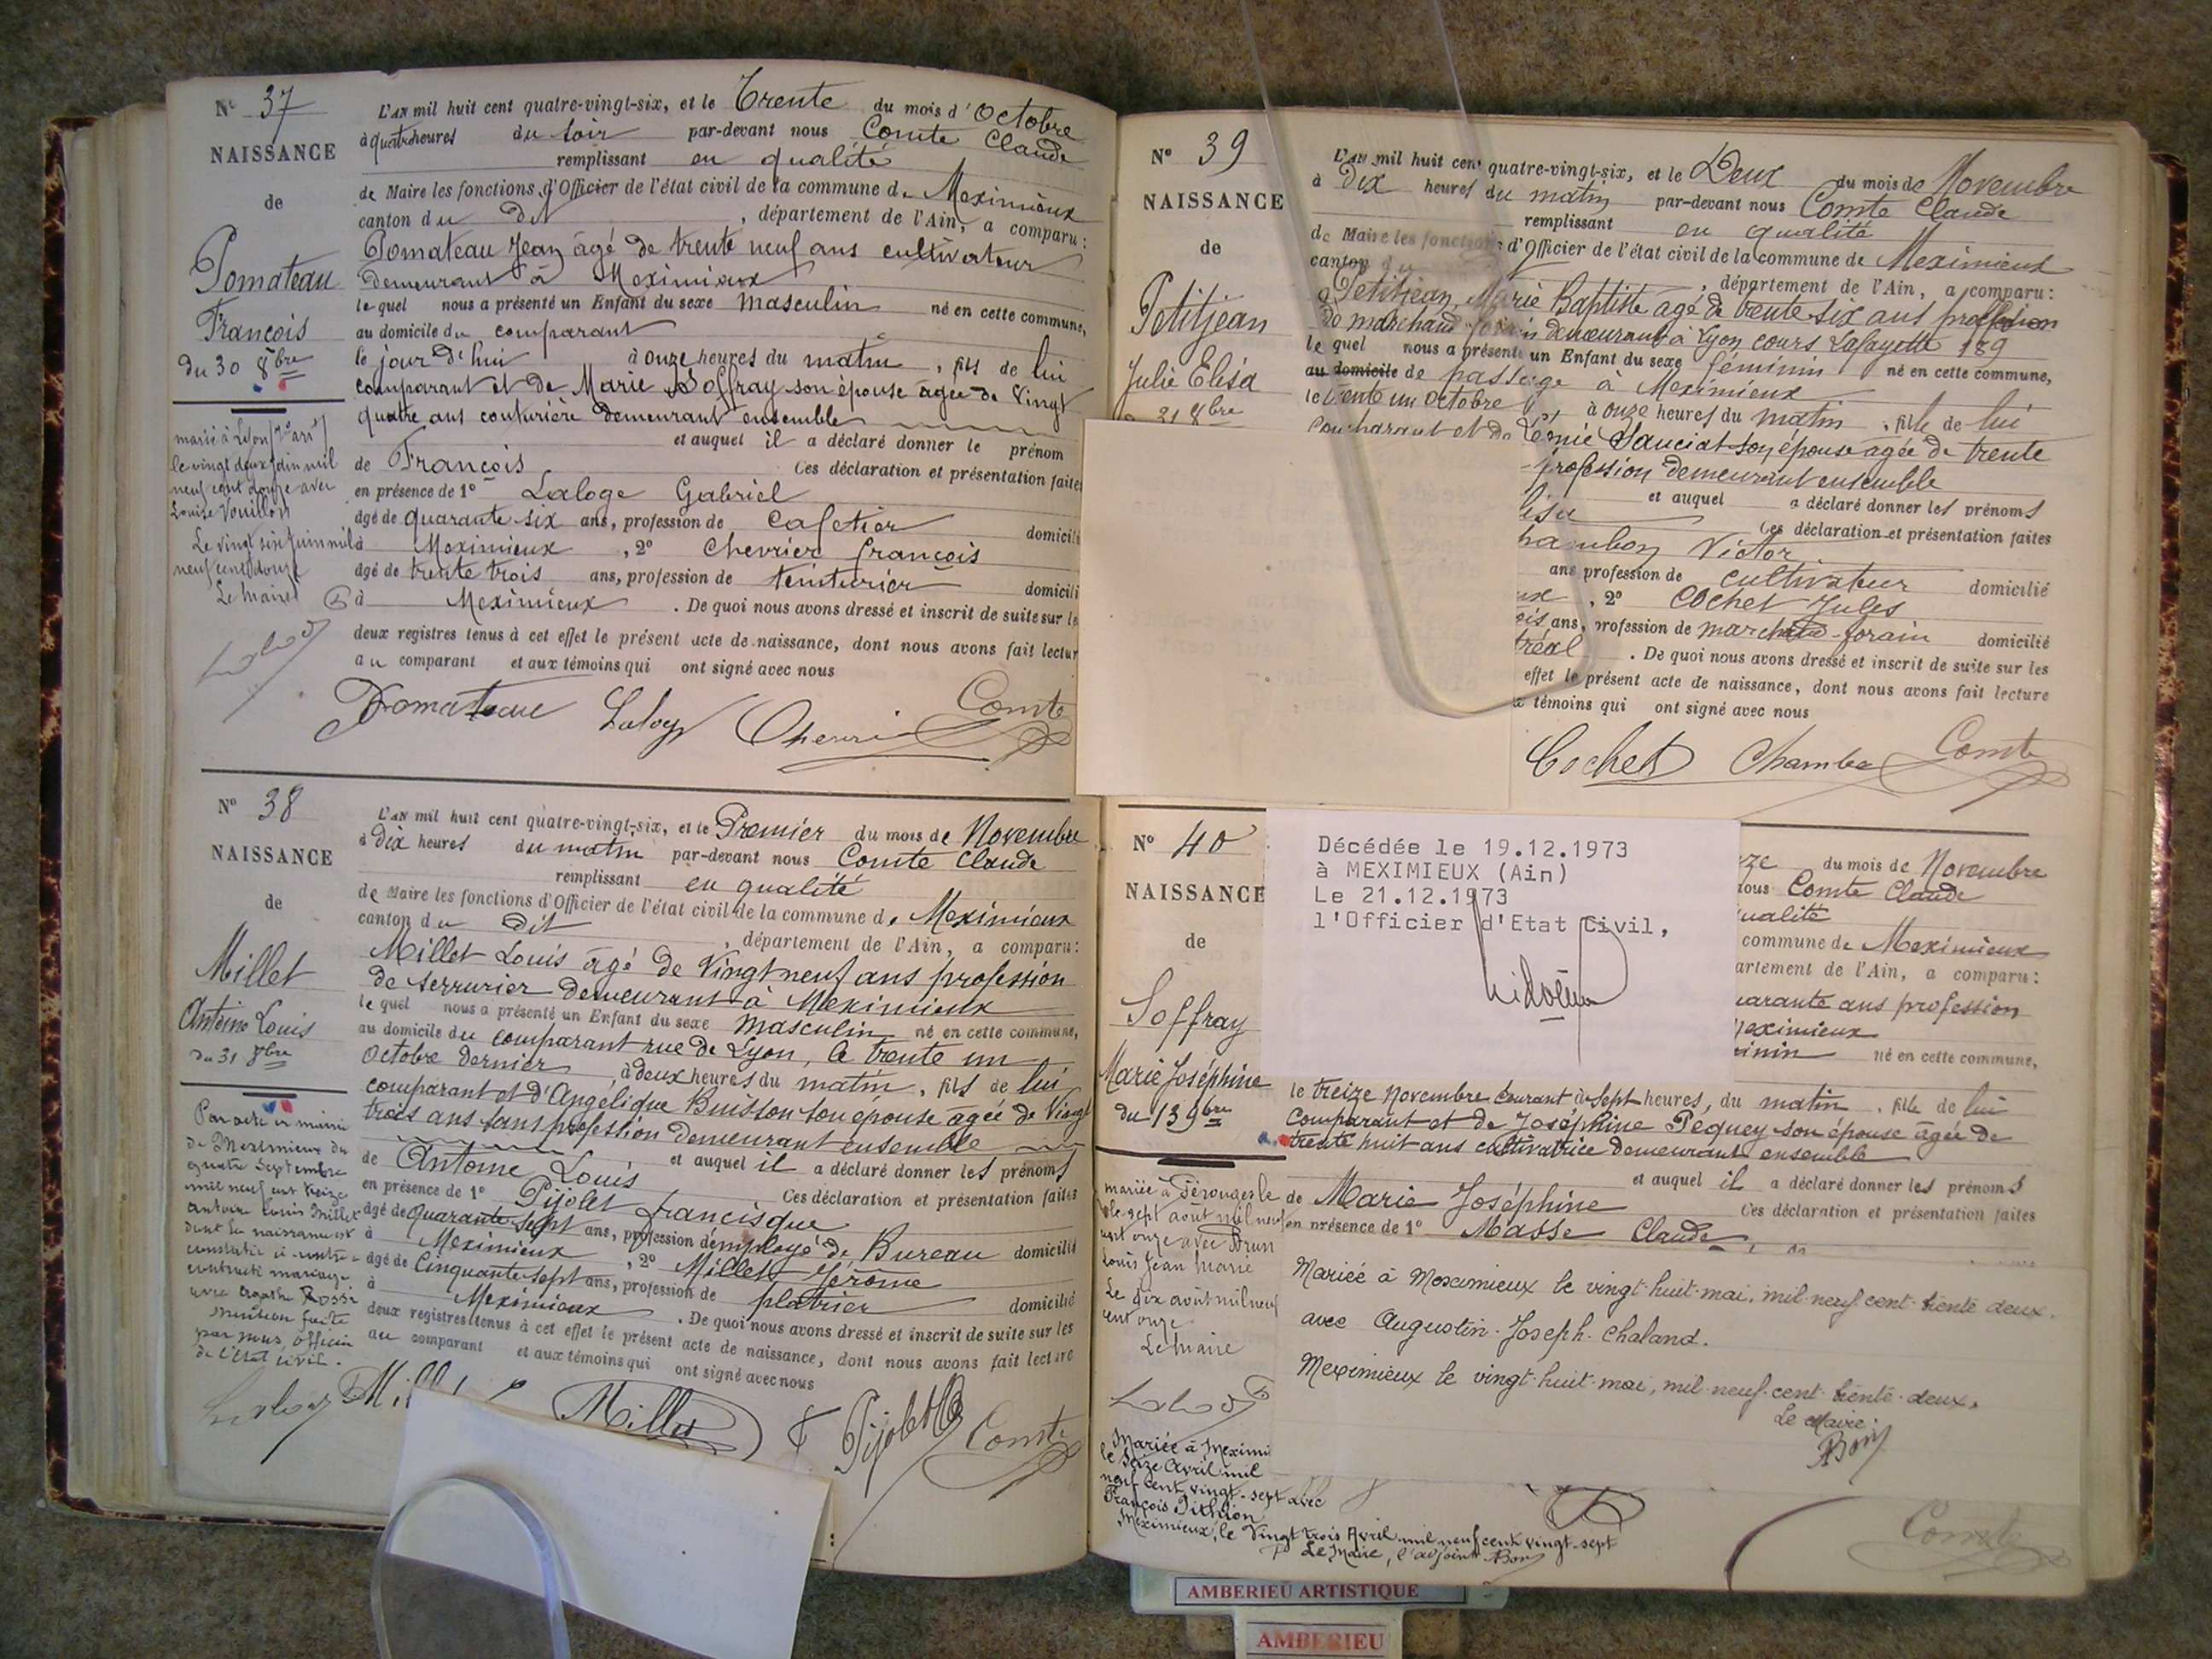 N° 37
NAISSANCE
de
Pomateau
François
du 30 8bre
marié à Lyon
le vingt deux juin mil
neuf cent douze avec
Louise Vouillon
Le vingt six juin mil
neuf cent douze
Le Maire
L'AN mil huit cent quatre-vingt-six, et le Trente du mois d'Octobre
à quatre heures du soir par-devant nous Comte Claude
remplissant en qualité
de Maire les fonctions d'Officier de l'état civil de la commune de Meximieux
canton du Dit, département de l'Ain, a comparu:
Pomateau Jean âgé de trente neuf ans cultivateur
demeurant à Meximieux
le quel nous a présenté un Enfant du sexe masculin né en cette commune,
au domicile du comparant
le jour d'hui à onze heures du matin, fils de lui
comparant et de Marie Soffray son épouse âgée de Vingt
quatre ans couturière demeurant ensemble
et auquel il a déclaré donner le prénom
de François Ces déclaration et présentation faites
en présence de 1° Laloge Gabriel
âgé de quarante six ans, profession de Cafetier domicili
à Meximieux, 2° Chevrier françois
âgé de trente trois ans, profession de teinturier domicili
à Meximieux. De quoi nous avons dressé et inscrit de suite sur le
deux registres tenus à cet effet le présent acte de naissance, dont nous avons fait lectur
au comparant et aux témoins qui ont signé avec nous
Pomateau Laloge Chevrier Comte
N° 38
NAISSANCE
de
Millet
Antoine Louis
du 31 8bre
Par acte en mairie
de Meximieux du
quatre Septembre
mil neuf cent treize
Antoine Louis Millet
dont la naissance est
constatée ci-contre a
contracté mariage
avec Agathe Rossi
mention faite
par nous, officier
de l'Etat civil.
L'AN mil huit cent quatre-vingt-six, et le Premier du mois de Novembre
à Dix heures du matin par-devant nous Comte Claude
remplissant en qualité
de Maire les fonctions d'Officier de l'état civil de la commune de Meximieux
canton du Dit, département de l'Ain, a comparu:
Millet Louis âgé de Vingt neuf ans profession
de serrurier demeurant à Meximieux
le quel nous a présenté un Enfant du sexe masculin né en cette commune,
au domicile du comparant rue de Lyon, le trente un
Octobre dernier à deux heures du matin, fils de lui
comparant et d'Angélique Buisson son épouse âgée de Vingt
trois ans sans profession demeurant ensemble
et auquel il a déclaré donner les prénoms
de Antoine Louis Ces déclaration et présentation faites
en présence de 1° Pijolet francisque
âgé de quarante sept ans, profession d'employé de Bureau domicilié
à Meximieux, 2° Millet Jérôme
âgé de Cinquante sept ans, profession de platrier domicilié
à Meximieux. De quoi nous avons dressé et inscrit de suite sur les
deux registres tenus à cet effet le présent acte de naissance, dont nous avons fait lecture
au comparant et aux témoins qui ont signé avec nous
Millet Pijolet Comte
N° 39
NAISSANCE
de
Petitjean
Julie Elisa
31 8bre
L'AN mil huit cent quatre-vingt-six, et le Deux du mois de Novembre
à Dix heures du matin par-devant nous Comte Claude
remplissant en qualité
de Maire les fonctions d'Officier de l'état civil de la commune de Meximieux
canton du, département de l'Ain, a comparu:
Petitjean Marie Baptiste agé de trente six ans profession
de marchand forain demeurant à Lyon cours Lafayette 189
le quel nous a présenté un Enfant du sexe féminin né en cette commune,
au domicile de passage à Meximieux
le trente un Octobre à onze heures du matin, fille de lui
comparant et de Sauciat son épouse agée de trente
profession demeurant ensemble
et auquel a déclaré donner les prénoms
lisa Ces déclaration et présentation faites
hambon Victor
ans profession de cultivateur domicilié
ux, 2° Cochet Jules
ois ans, profession de marchand-forain domicilié
tréal. De quoi nous avons dressé et inscrit de suite sur les
effet le présent acte de naissance, dont nous avons fait lecture
x témoins qui ont signé avec nous
Cochet Chambon Comte
N° 40
NAISSANCE
de
Soffray
Marie Joséphine
du 13 9bre
mariée à Pérouges le
le sept août mil neuf
cent onze avec Brun
Louis Jean Marie
Le dix août mil neuf
cent onze
Le Maire
Mariée à Meximi
le seize Avril mil
neuf cent vingt-sept avec
François Pithion
Meximieux, le Vingt trois Avril mil neuf cent vingt-sept
Le Maire, l'adjoint Bon
Décédée le 19.12.1973
à MEXIMIEUX (Ain)
Le 21.12.1973
l'Officier d'Etat Civil,
ze du mois de Novembre
nous Comte Claude
ualité
commune de Meximieux
artement de l'Ain, a comparu:
uarante ans profession
eximieux
inin né en cette commune,
le treize Novembre courant à Sept heures, du matin, fille de lui
comparant et de Joséphine Pequey son épouse âgée de
trente huit ans cultivatrice demeurant ensemble
et auquel il a déclaré donner les prénoms
de Marie Joséphine Ces déclaration et présentation faites
en présence de 1° Masse Claude
Mariée à Meximieux le vingt-huit-mai, mil-neuf-cent-trente deux.
avec Augustin-Joseph-Chaland.
Meximieux le vingt-huit-mai, mil-neuf-cent-trente-deux.
Le Maire:
Bon
Comte
AMBERIEU ARTISTIQUE
AMBERIEU